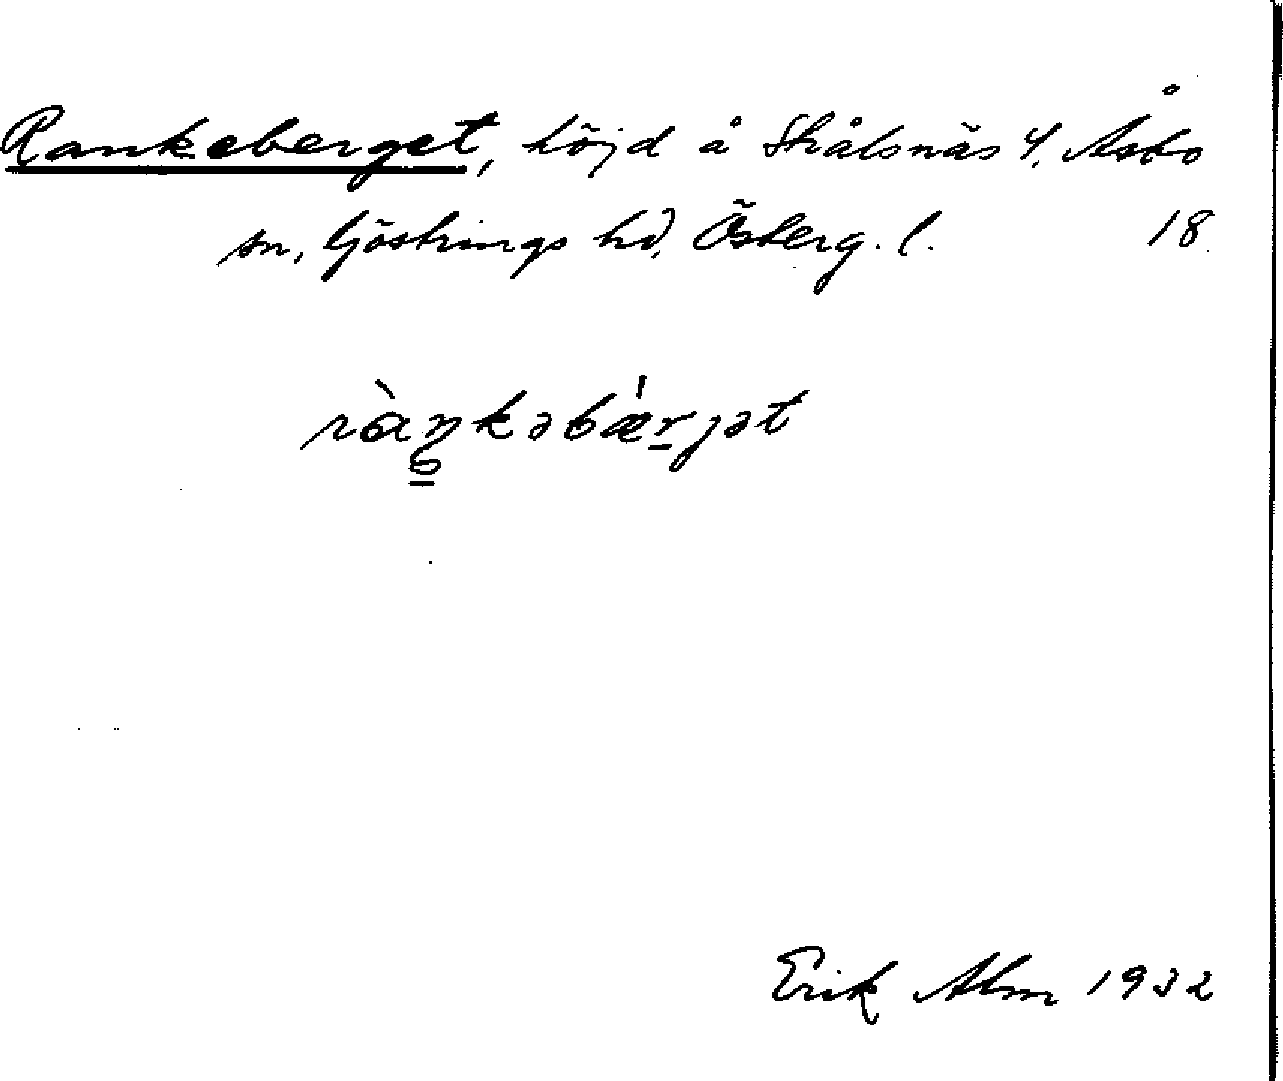 Rankeberget, höjd å Skålsnäs Y. Åsbo
sn, Göstrings hd, Österg. l. 18
ràŋkəbǽrjət
Erik Alm 1932